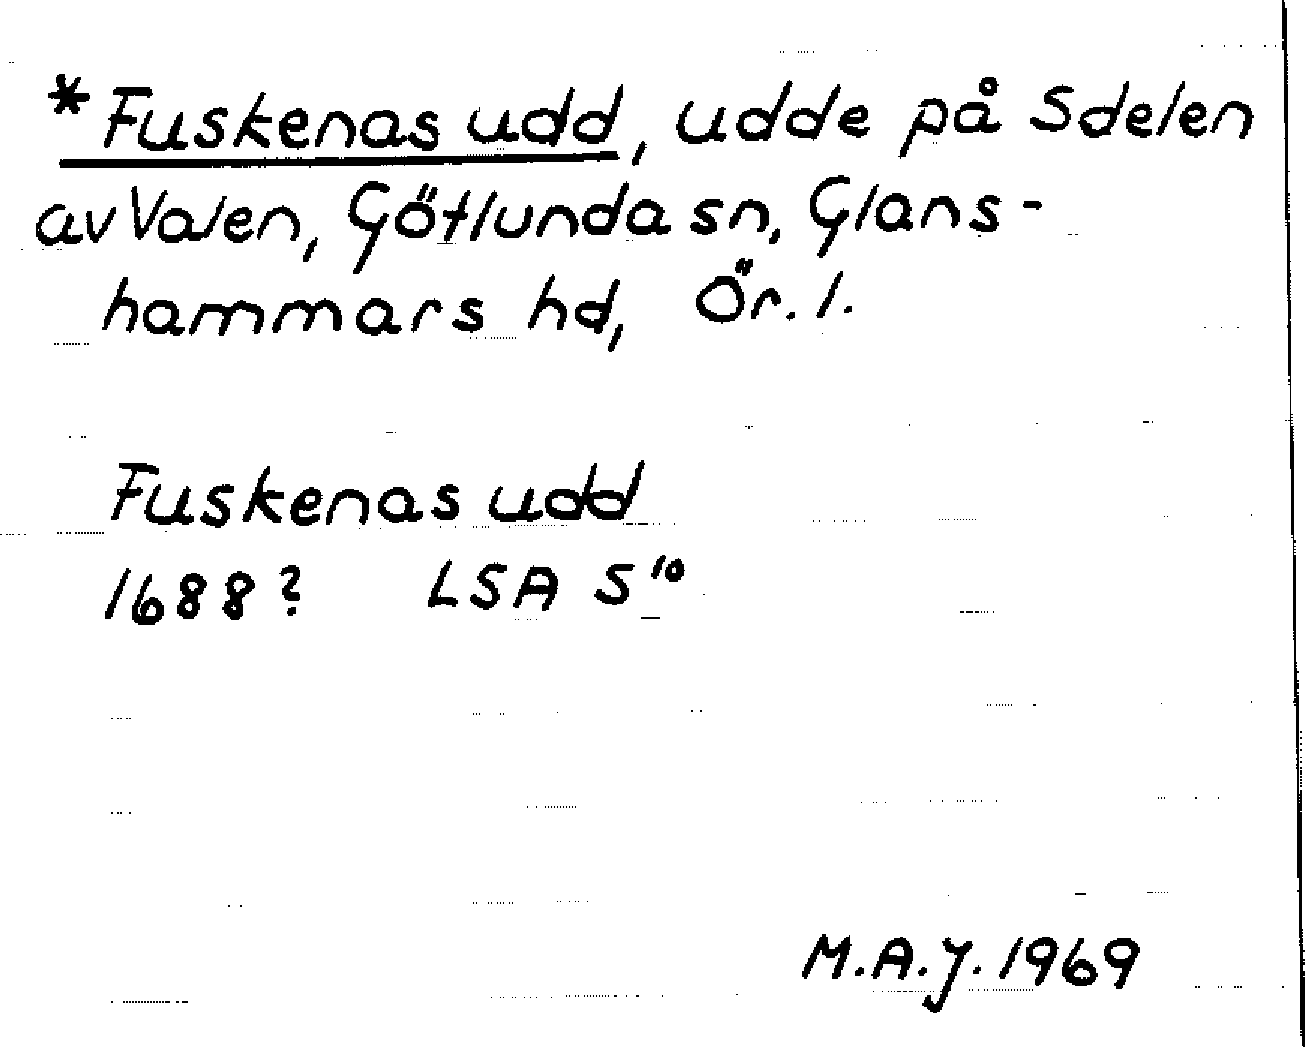 *Fuskenas udd, udde på Sdelen
av Valen, Götlunda sn, Glans-
hammars hd, Ör. l.
Fuskenas udd
1688? LSA S 10
M.A.J. 1969